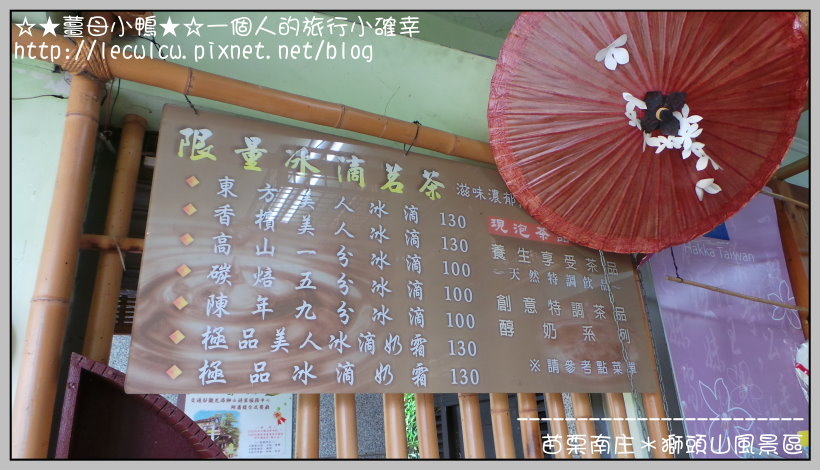 ☆★薑母小鴨★☆一個人的旅行小確幸
http://lecwlcw.pixnet.net/blog
限量冰滴茗茶 滋味濃郁
東方美人冰滴 130
香檳美人冰滴 130
高山一分冰滴 100
碳焙五分冰滴 100
陳年九分冰滴 100
極品美人冰滴奶霜 130
極品冰滴奶霜 130
現泡茶
養生享受茶品
天然特調飲品
創意特調茶品
醇奶系列
※請參考點菜單
Hakka Taiwan
苗栗南庄＊獅頭山風景區